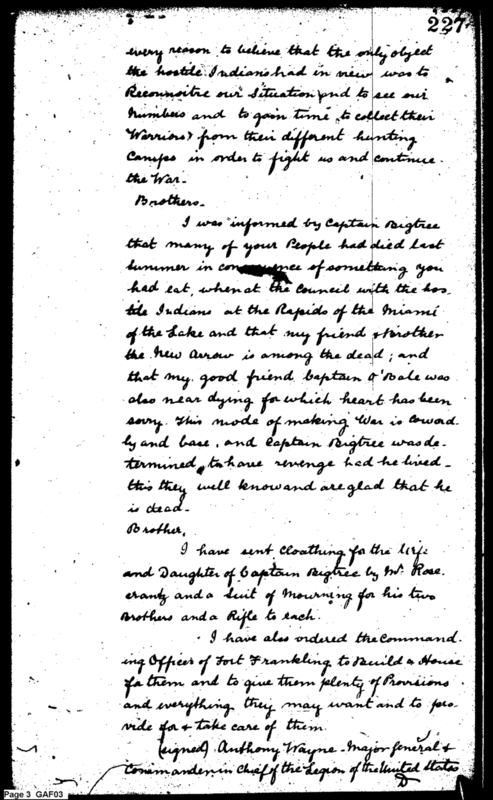 227
every reason to believe that the only object
the hostile Indians had in view was to
Reconnoitre our Situation and to see our
Numbers and to gain time to collect their
Warriors from their different hunting
Camps in order to fight us and continue
the War -
Brothers -
I was informed by Captain Bigtree
that many of your People had died last
Summer in consequence of something you
had eat, when at the Council with the hos-
tile Indians at the Rapids of the Miami
of the Lake and that my friend & brother
the New Arrow is among the dead; and
that my good friend Captain O'Bale was
also near dying for which heart has been
sorry. This mode of making War is Coward-
ly and base, and Captain Bigtree was de-
termined to have revenge had he lived -
this they well know and are glad that he
is dead -
Brother,
I have sent Cloathing for the Wife
and Daughter of Captain Bigtree by Mr. Rose-
crantz and a Suit of Mourning for his two
Brothers and a Rifle to each.
I have also ordered the Command-
ing Officer of Fort Frankling to Build a House
for them and to give them plenty of Provisions
and everything they may want and to pro-
vide for & take care of them
(signed) Anthony Wayne - Major General &
Commander in Chief of the Legion of the United States
Page 3 GAF03